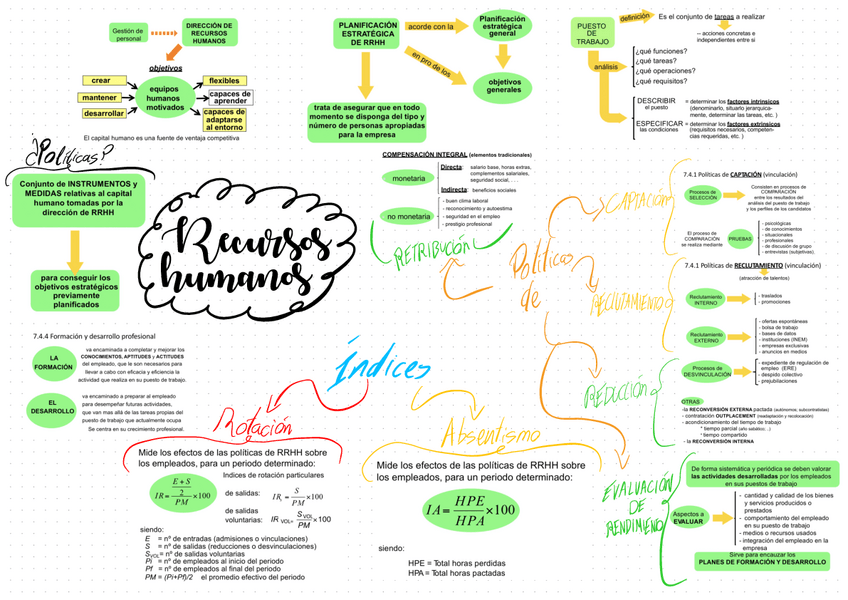 Gestión de
personal
DIRECCIÓN DE
RECURSOS
HUMANOS
objetivos
crear
mantener
desarrollar
equipos
humanos
motivados
flexibles
capaces de
aprender
capaces de
adaptarse
al entorno
El capital humano es una fuente de ventaja competitiva
PLANIFICACIÓN
ESTRATÉGICA
DE RRHH
acorde con la
Planificación
estratégica
general
en pro de los
objetivos
generales
trata de asegurar que en todo
momento se disponga del tipo y
número de personas apropiadas
para la empresa
PUESTO
DE
TRABAJO
definición
Es el conjunto de tareas a realizar
-- acciones concretas e
independientes entre si
análisis
¿qué funciones?
¿qué tareas?
¿qué operaciones?
¿qué requisitos?
DESCRIBIR
el puesto
= determinar los factores intrínsicos
(denominarlo, situarlo jerárquica-
mente, determinar las tareas, etc. )
ESPECIFICAR
las condiciones
= determinar los factores extrínsicos
(requisitos necesarios, competen-
cias requeridas, etc. )
¿Políticas?
Conjunto de INSTRUMENTOS y
MEDIDAS relativas al capital
humano tomadas por la
dirección de RRHH
para conseguir los
objetivos estratégicos
previamente
planificados
Recursos
humanos
COMPENSACIÓN INTEGRAL (elementos tradicionales)
monetaria
Directa: salario base, horas extras,
complementos salariales,
seguridad social, . . .
Indirecta: beneficios sociales
no monetaria
- buen clima laboral
- reconocimiento y autoestima
- seguridad en el empleo
- prestigio profesional
RETRIBUCIÓN
Políticas
de
CAPTACIÓN
RECLUTAMIENTO
REDUCCIÓN
EVALUACIÓN
DE
RENDIMIENTO
7.4.1 Políticas de CAPTACIÓN (vinculación)
Procesos de
SELECCIÓN
Consisten en procesos de
COMPARACIÓN
entre los resultados del
análisis del puesto de trabajo
y los perfiles de los candidatos
El proceso de
COMPARACIÓN
se realiza mediante
PRUEBAS
- psicológicas
- de conocimientos
- situacionales
- profesionales
- de discusión de grupo
- entrevistas (subjetivas)
7.4.1 Políticas de RECLUTAMIENTO (vinculación)
(atracción de talentos)
Reclutamiento
INTERNO
- traslados
- promociones
Reclutamiento
EXTERNO
- ofertas espontáneas
- bolsa de trabajo
- bases de datos
- instituciones (INEM)
- empresas exclusivas
- anuncios en medios
Procesos de
DESVINCULACIÓN
- expediente de regulación de
empleo (ERE)
- despido colectivo
- prejubilaciones
OTRAS
-la RECONVERSIÓN EXTERNA pactada (autónomos; subcontratadas)
- contratación OUTPLACEMENT (readaptación y recolocación)
- acondicionamiento del tiempo de trabajo
* tiempo parcial (año sabático…)
* tiempo compartido
- la RECONVERSIÓN INTERNA
De forma sistemática y periódica se deben valorar
las actividades desarrolladas por los empleados
en sus puestos de trabajo
Aspectos a
EVALUAR
- cantidad y calidad de los bienes
y servicios producidos o
prestados
- comportamiento del empleado
en su puesto de trabajo
- medios o recursos usados
- integración del empleado en la
empresa
Sirve para encauzar los
PLANES DE FORMACIÓN Y DESARROLLO
7.4.4 Formación y desarrollo profesional
LA
FORMACIÓN
va encaminada a completar y mejorar los
CONOCIMIENTOS, APTITUDES y ACTITUDES
del empleado, que le son necesarios para
llevar a cabo con eficacia y eficiencia la
actividad que realiza en su puesto de trabajo.
EL
DESARROLLO
va encaminado a preparar al empleado
para desempeñar futuras actividades,
que van mas allá de las tareas propias del
puesto de trabajo que actualmente ocupa
Se centra en su crecimiento profesional.
Índices
Rotación
Mide los efectos de las políticas de RRHH sobre
los empleados, para un periodo determinado:
IR = ((E + S) / 2) / PM ×100
Indices de rotación particulares
de salidas: IRₛ = S / PM ×100
de salidas
voluntarias: IR VOL= S VOL / PM ×100
siendo:
E = nº de entradas (admisiones o vinculaciones)
S = nº de salidas (reducciones o desvinculaciones)
SVOL= nº de salidas voluntarias
Pi = nº de empleados al inicio del periodo
Pf = nº de empleados al final del periodo
PM = (Pi+Pf)/2 el promedio efectivo del periodo
Absentismo
Mide los efectos de las políticas de RRHH sobre
los empleados, para un periodo determinado:
IA = HPE / HPA ×100
siendo:
HPE = Total horas perdidas
HPA = Total horas pactadas